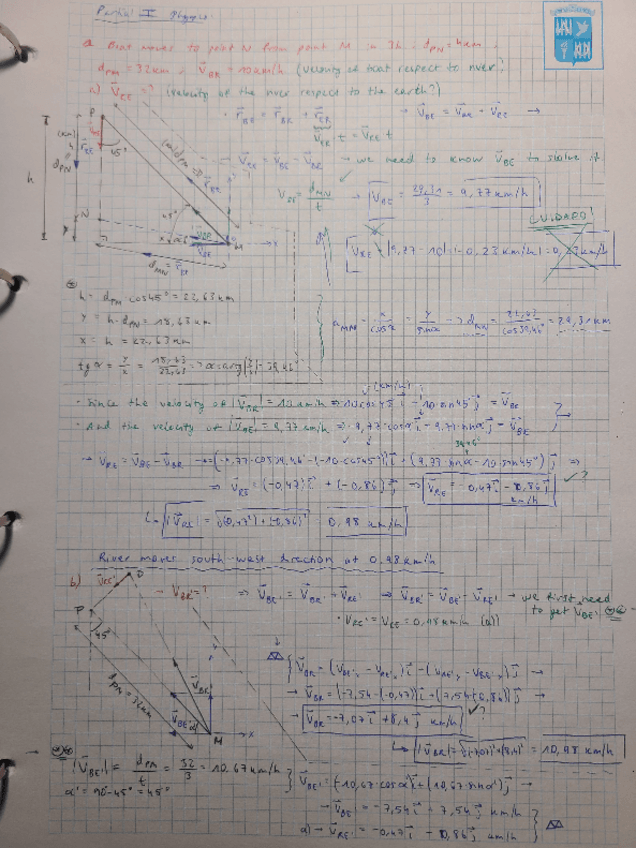 Partial I Physics
a Boat moves to point N from point M in 3h. dPN = 4km,
dPM = 32km, V⃗BR = 10km/h (velocity of boat respect to river)
a) V⃗RE = ? (velocity of the river respect to the earth?)
r⃗BE = r⃗BR + r⃗ER → V⃗BE = V⃗BR + V⃗RE →
V⃗RE t
P
45°
h
dPN
V⃗RE = V⃗BE - V⃗BR → we need to know V⃗BE to solve it
VBE = dMN/t → VBE = 29,31/3 = 9,77 km/h
CUIDADO
VRE = |9,77 - 10| = |-0,23 km/h| = 0,23 km/h
N
45°
x
M
dMN
h = dPM cos45° = 22,63 km
y = h - dPN = 18,63 km
x = h = 22,63 km
tg α = y/x = 18,63/22,63
dMN = x/cosα = y/sinα → dMN = 22,63/cos39,46° = 29,31 km
(km/h)
· Since the velocity of |V⃗BR| = 10 km/h ⇒ -10cos45° i⃗ - 10 sin45° j⃗ = V⃗BR
· And the velocity of |V⃗BE| = 9,77 km/h ⇒ -9,77 cosα i⃗ - 9,77 sinα j⃗ = V⃗BE
→ V⃗RE = V⃗BE - V⃗BR
⇒ V⃗RE = (-0,47) i⃗ + (-0,86) j⃗ ⇒ V⃗RE = -0,47 i⃗ - 0,86 j⃗ km/h ?
|V⃗RE| = √(0,47²) + (-0,86)² = 0,98 km/h
River moves south-west direction at 0,98 km/h
b) V⃗BR' = ? ⇒ V⃗BE' = V⃗BR' + V⃗RE' ⇒ V⃗BR' = V⃗BE' - V⃗RE' → we first need
to get V⃗BE'
· VRE' = VRE = 0,98 km/h (a)
P
45°
dPM = 32km
M
x
→ V⃗BR = (-7,54 - (-0,47)) i⃗ + (7,54 - (-0,86)) j⃗ →
→ V⃗BR = -7,07 i⃗ + 8,4 j⃗ km/h ?
|V⃗BR| = √(-7,07)² + (8,4)² = 10,98 km/h
|V⃗BE'| = dPM/t = 32/3 = 10,67 km/h
α' = 90° - 45° = 45°
V⃗BE' = (-10,67 cosα') i⃗ + (10,67 sinα') j⃗ →
→ V⃗BE' = -7,54 i⃗ + 7,54 j⃗ km/h
a) → V⃗RE' = -0,47 i⃗ - 0,86 j⃗ km/h